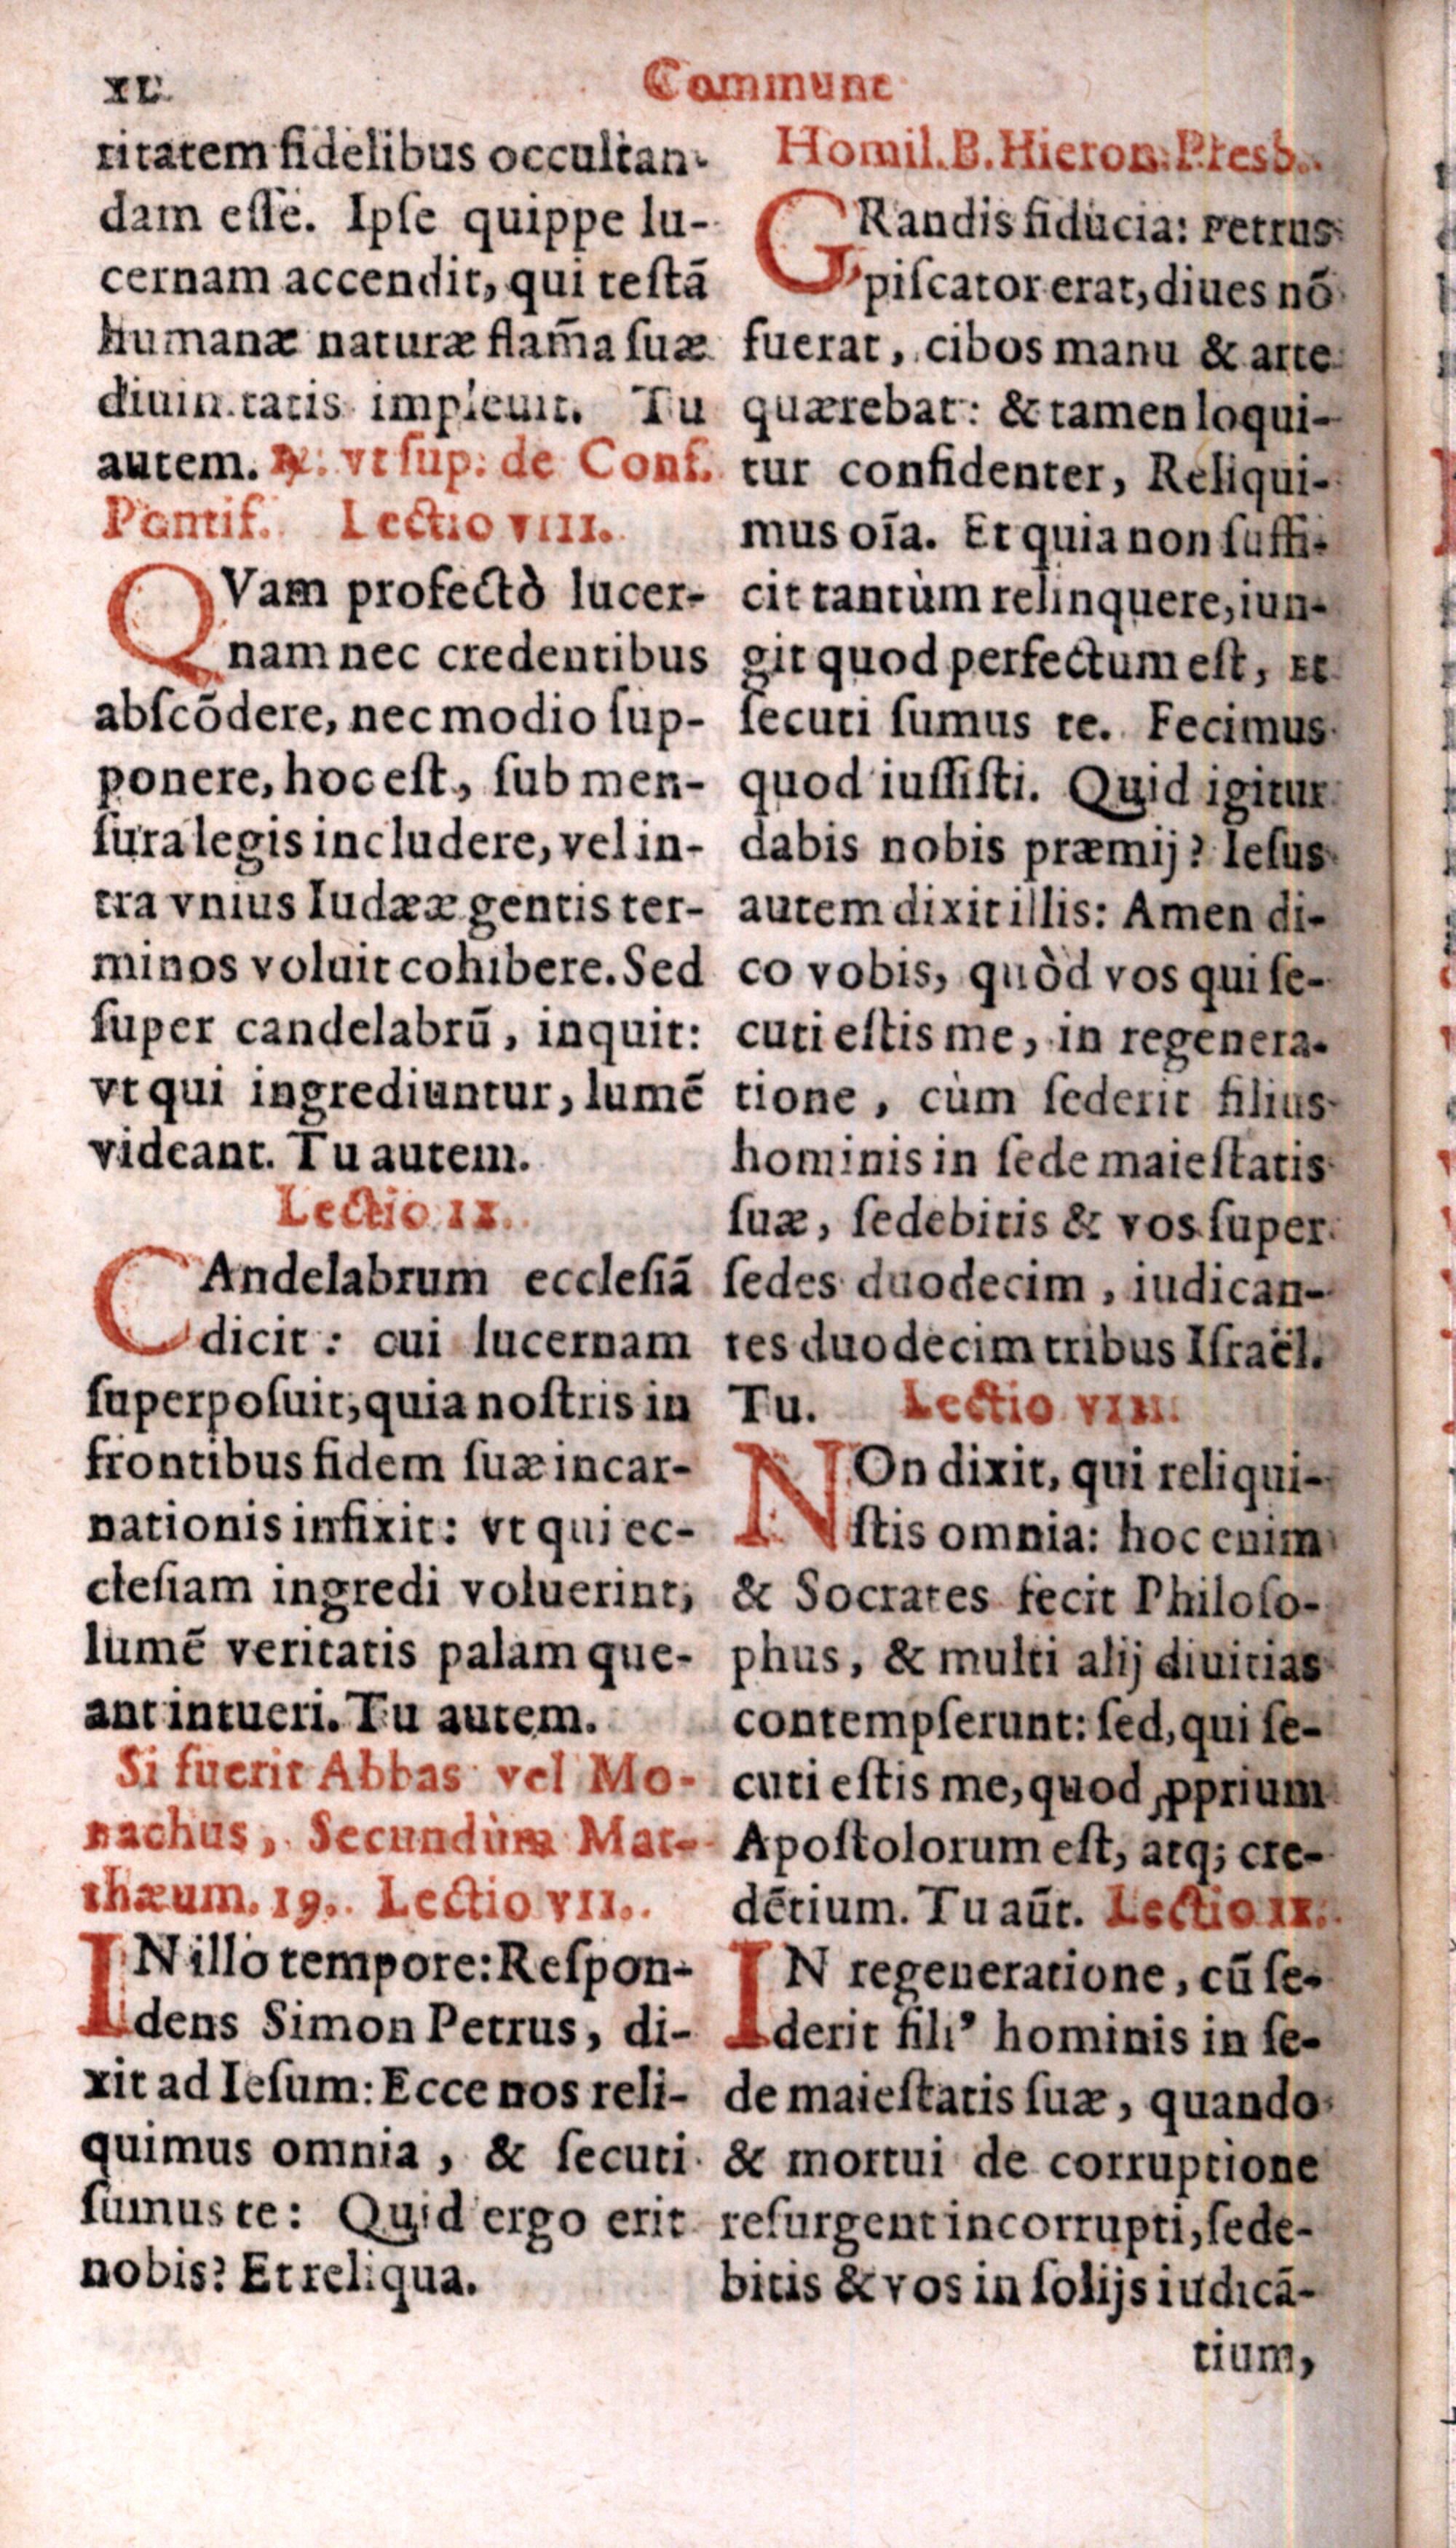 xl.
Commune
ritatem fidelibus occultan-
dam eſſe. Ipſe quippe lu-
cernam accendit, qui teſtā
humanæ naturæ flam̄a ſuæ
diuinitatis impleuit. Tu
autem. ℟. vt ſup. de Conf.
Pontif. Lectio VIII.
QVam profectò lucer-
nam nec credentibus
abſcōdere, nec modio ſup-
ponere, hoc eſt, ſub men-
ſura legis includere, vel in-
tra vnius Iudææ gentis ter-
minos voluit cohibere. Sed
ſuper candelabrū, inquit:
vt qui ingrediuntur, lumē
videant. Tu autem.
Lectio IX.
CAndelabrum eccleſiā
dicit: cui lucernam
ſuperpoſuit; quia noſtris in
frontibus fidem ſuæ incar-
nationis infixit: vt qui ec-
cleſiam ingredi voluerint,
lumē veritatis palam que-
ant intueri. Tu autem.
Si fuerit Abbas vel Mo-
nachus, Secundùm Mat-
thæum. 19. Lectio VII.
IN illo tempore: Reſpon-
dens Simon Petrus, di-
xit ad Ieſum: Ecce nos reli-
quimus omnia, & ſecuti
ſumus te: Quid ergo erit
nobis? Et reliqua.
Homil. B. Hieron. Presb.
GRandis fiducia: Petrus
piſcator erat, diues nō
fuerat, cibos manu & arte
quærebat: & tamen loqui-
tur confidenter, Reliqui-
mus oīa. Et quia non ſuffi-
cit tantùm relinquere, iun-
git quod perfectum eſt, Et
ſecuti ſumus te. Fecimus
quod iuſſiſti. Quid igitur
dabis nobis præmij? Ieſus
autem dixit illis: Amen di-
co vobis, quòd vos qui ſe-
cuti eſtis me, in regenera-
tione, cùm ſederit filius
hominis in ſede maieſtatis
ſuæ, ſedebitis & vos ſuper
ſedes duodecim, iudican-
tes duodecim tribus Iſraël.
Tu. Lectio VIII.
NOn dixit, qui reliqui-
ſtis omnia: hoc enim
& Socrates fecit Philoſo-
phus, & multi alij diuitias
contempſerunt: ſed, qui ſe-
cuti eſtis me, quod ꝓprium
Apoſtolorum eſt, atq; cre-
dētium. Tu aūt. Lectio IX.
IN regeneratione, cū ſe-
derit fili’ hominis in ſe-
de maieſtatis ſuæ, quando
& mortui de corruptione
reſurgent incorrupti, ſede-
bitis & vos in ſolijs iudicā-
tium,